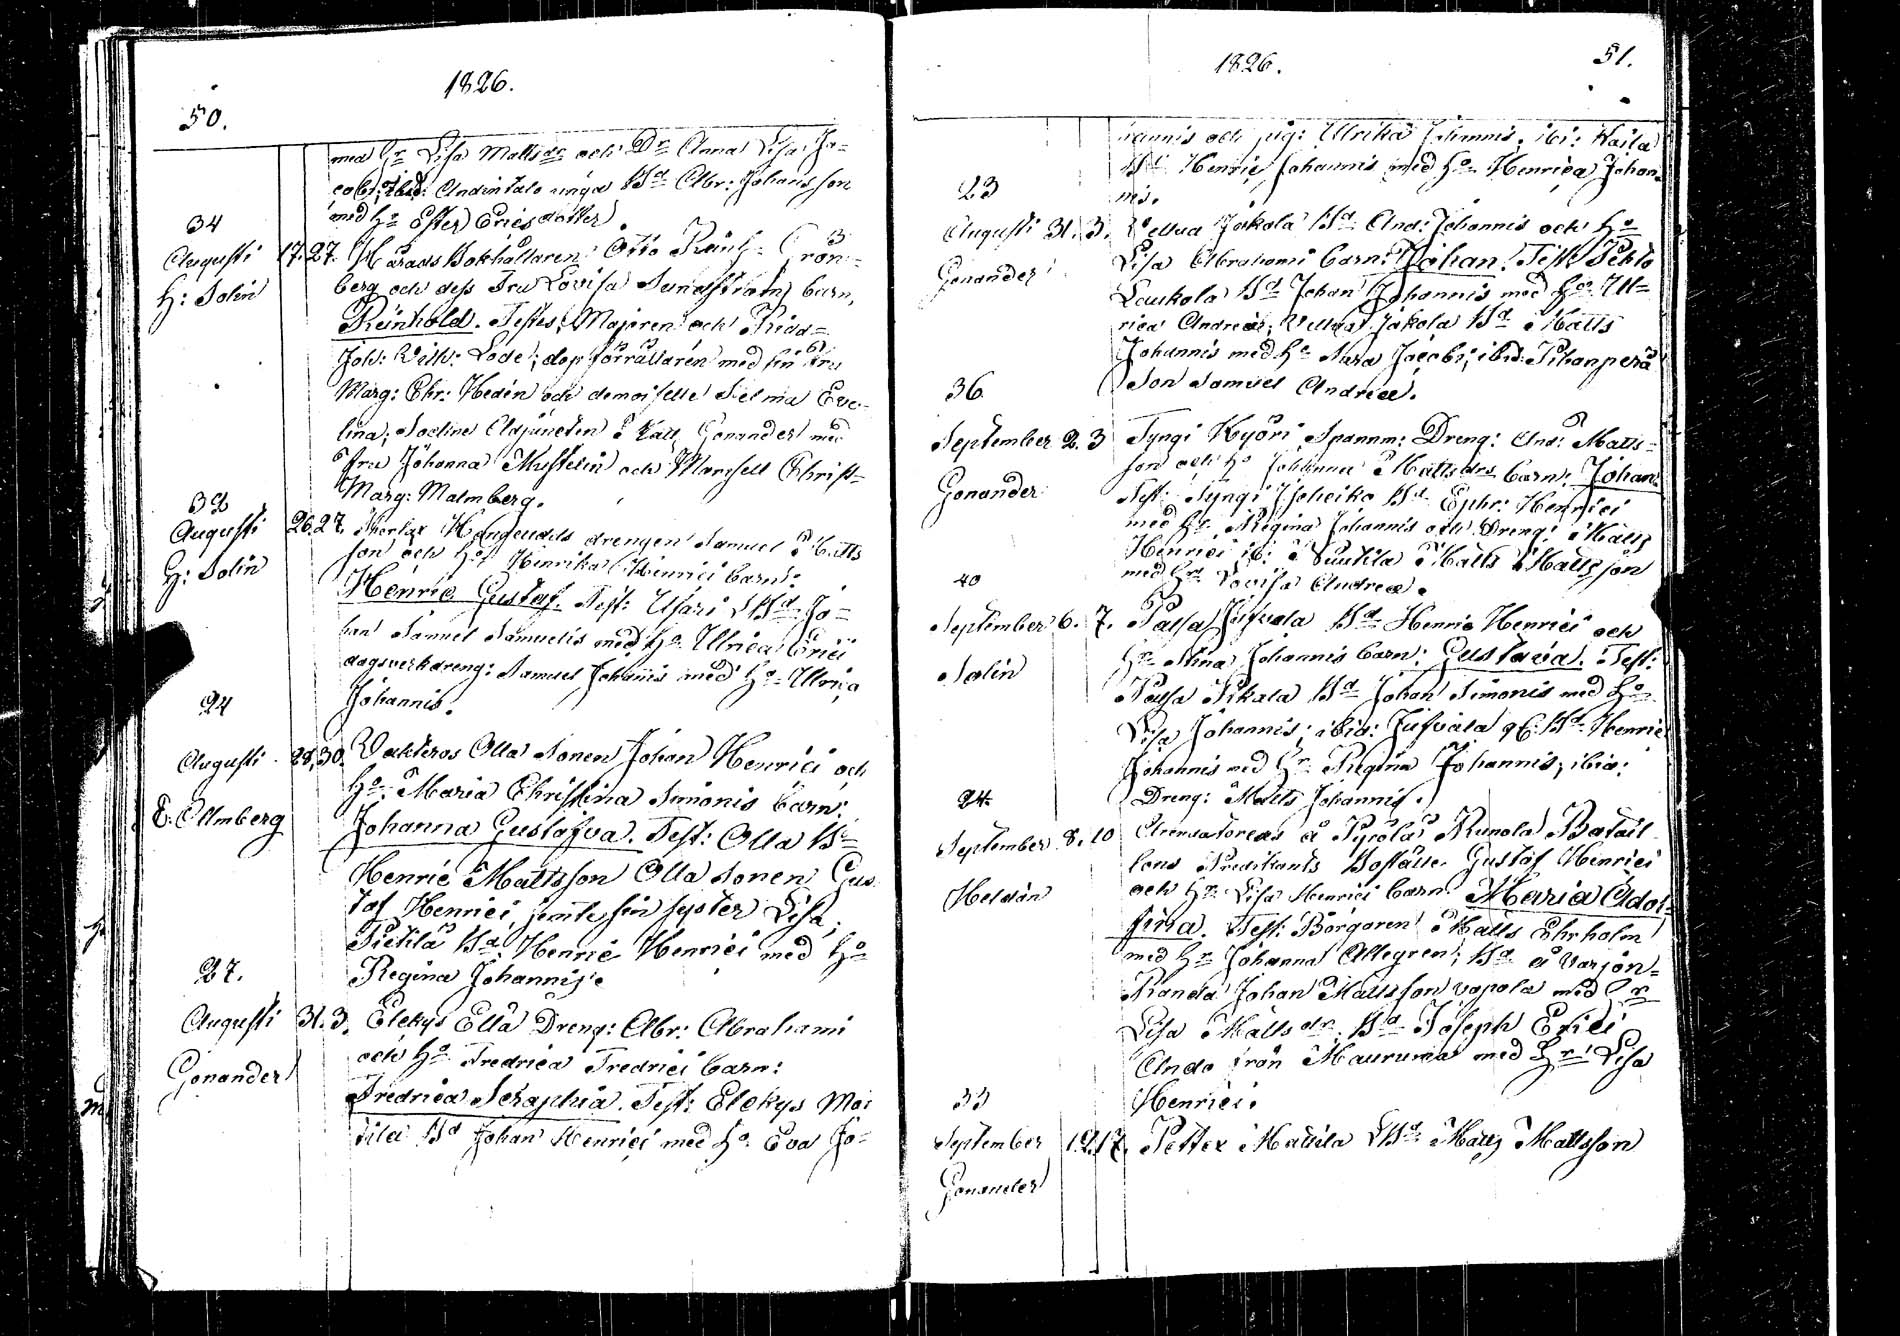 1826.
50.
med Hr Lisa Mattsdr och Dr Anna Lisa Ja=
cobi; ibid: Andintalo unga Bd Abr: Johansson
med Ho Ester Ericsdotter
34
Augusti 17. 27. Härads Bokhållaren Otto Reinh. Grön=
H: Solin
berg och dess Fru Lovisa Sundström barn,
Reinhold. Testes: Majoren och Ridd=
Joh: Vilh: Lode; dopförrättaren med sin Fru
Marg: Chr: Hedén och demoiselle Selma Eve=
lina; Sockne Adjuncten Gonander med
fru Johanna Mustelin och Mamsell Christ=
Marg: Malmberg.
32
Augusti 26. 27. drengen Samuel Matts
H: Solin
son och Ho Henrika Henrici barn:
Henric Gustaf. Test: Usari Bd Jo=
han Samuel Samuelis med Ho Ulrica Erici
dagsverkdreng: Samuel Johannis med Ho Ulrica
Johannis.
24
Augusti 28, 30. Olla Sonen Johan Henrici och
E: Ollmberg
Ho Maria Christina Simonis barn:
Johanna Gustafva. Test: Olla Bd
Henric Mattsson Olla Sonen Gus
taf Henrici jemte sin syster Lisa;
Pietilä Bd Henric Henrici med Ho
Regina Johannis.
27.
Augusti 31. 3. Elekys Ella Dreng: Abr: Abrahami
Gonander
och Ho Fredrica Fredrici barn:
Fredrica Seraphia. Test: Elekys
Bd Johan Henrici med Ho Eva Jo=
1826.
51.
hannis och pig: Ulrika Johannis. ibi:
Bd Henric Johannis med Ho Henrica Johan=
nis.
23
Augusti 31. 3. Vellua Jakola Bd And: Johannis och Ho
Gonander
Lisa Abrahami barn: Johan. Test:
Laukola Bd Johan Johannis med Ho Ul=
rica Andreæ; Vellua Jakola Bd Matts
Johannis med Ho Jacobi; ibid: Pihanperä
Son Samuel Andreæ.
36
September 2. 3 Tyngi Kyöri Spannm: Dreng: And: Matts=
Gonander
son och Ho Johanna Mattsdrs barn: Johan.
Test: Tyngi Bd Ephr: Henrici
med Hr Regina Johannis och Dreng: Matts
Henrici ib: Matts Mattsson
med Hr Lovisa Andreæ.
40
September 6. 7. Palsa Jufvala Bd Henric Henrici och
Solin
Hr Stina Johannis barn: Gustava. Test:
Palsa Pikala Bd Johan Simonis med Ho
Lisa Johannis; ibid: Jufvala Bd Henric
Johannis med Hr Regina Johannis; ibid:
Dreng: Matts Johannis.
24
September 8. 10 å Pyöla Runola Batail=
Heldán
lons Predikants Boställe Gustaf Henrici
och Hr Lisa Henrici barn Maria Adol=
fina. Test: Borgaren Matts Ehrholm
med Hr Johanna Allegren; Bd å Varjon=
Randa Johan Mattsson med Hr
Lisa Mattsdr. Bd Joseph Erici
från med Hr Lisa
Henrici.
33
September 12. 17. Petter Mattila Bd Matts Mattsson
Gonander